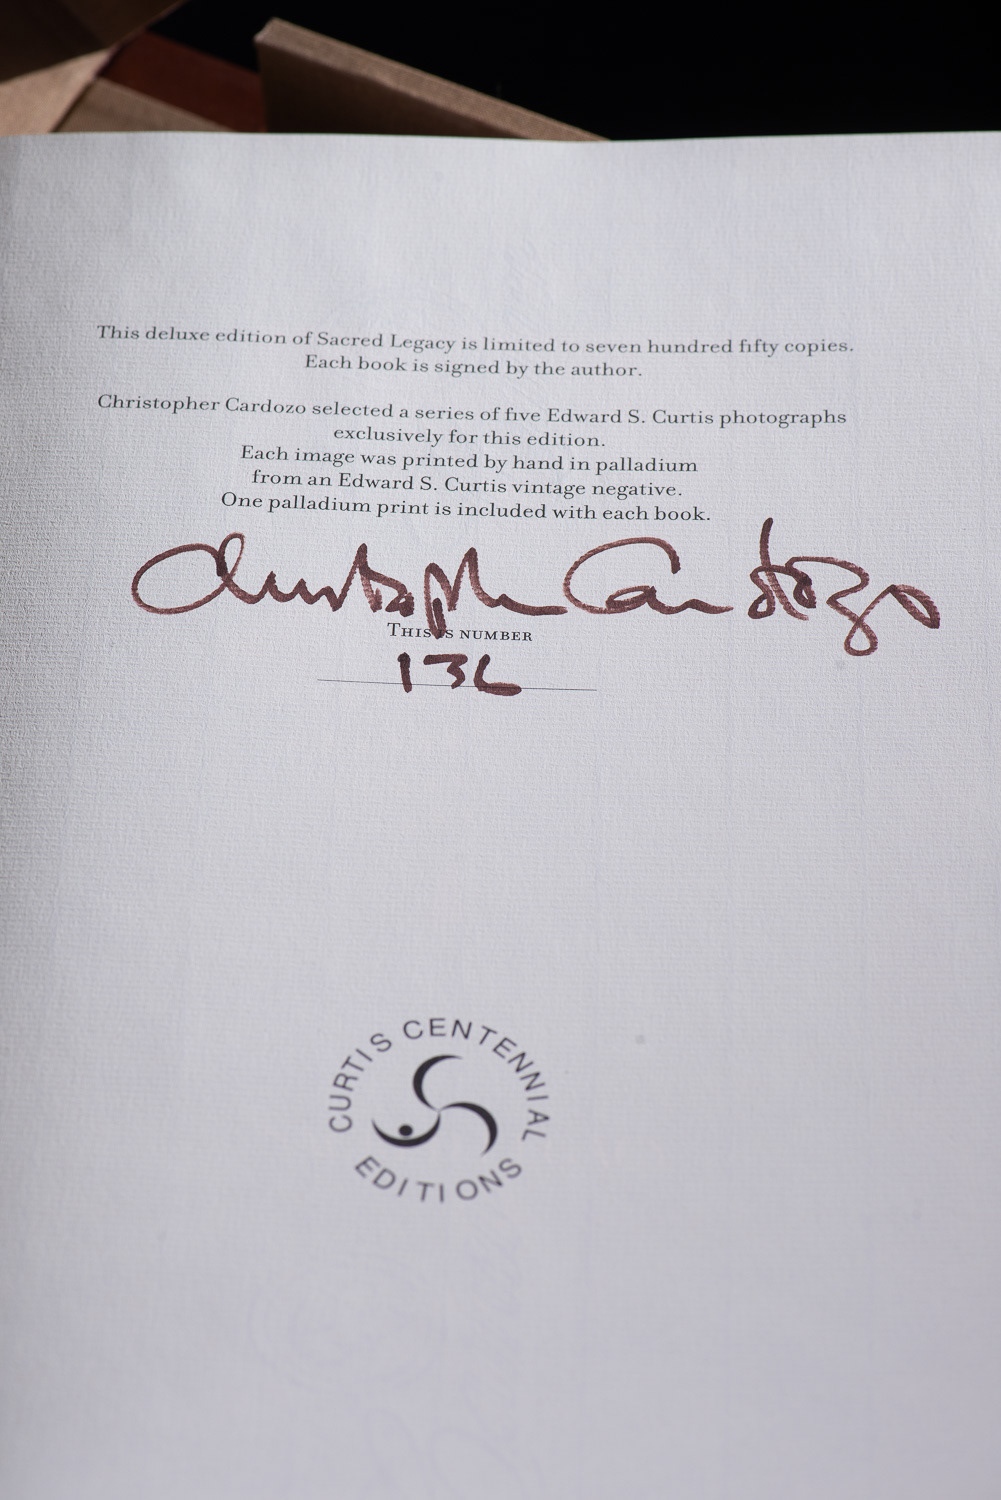 This deluxe edition of Sacred Legacy is limited to seven hundred fifty copies.
Each book is signed by the author.
Christopher Cardozo selected a series of five Edward S. Curtis photographs
exclusively for this edition.
Each image was printed by hand in palladium
from an Edward S. Curtis vintage negative.
One palladium print is included with each book.
Christopher Cardozo
THIS IS NUMBER
136
CURTIS CENTENNIAL
EDITIONS